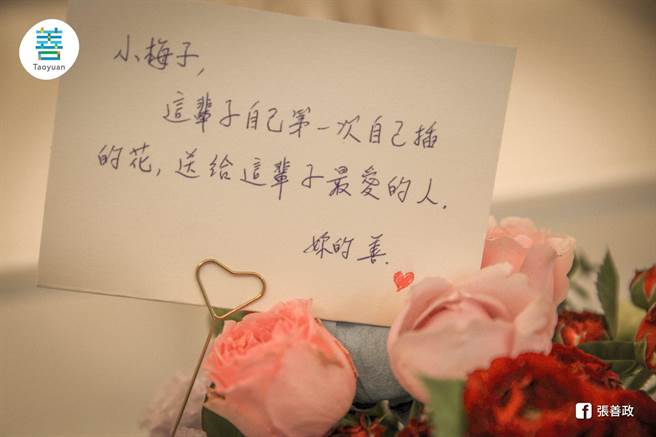 善
Taoyuan
小梅子,
這輩子自己第一次自己插
的花,送給這輩子最愛的人.
妳的 善.
張善政